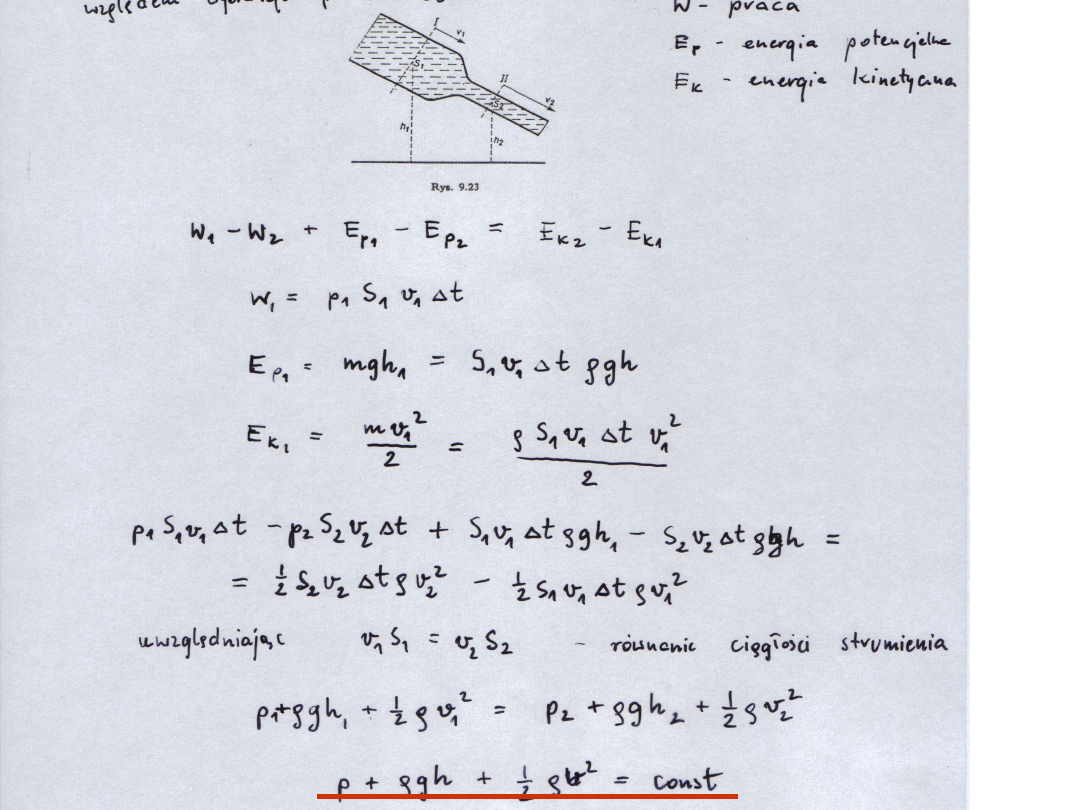 względem
W - praca
Ep - energia potencjelna
EK - energia kinetyczna
I
v1
S1
II
v2
S2
h1
h2
Rys. 9.23
W1 - W2 + Ep1 - Ep2 = EK2 - EK1
W1 = p1 S1 v1 Δt
Ep1 = mgh1 = S1 v1 Δt ρgh
EK1 = mv1²/2 = ρ S1 v1 Δt v1²/2
p1 S1 v1 Δt - p2 S2 v2 Δt + S1 v1 Δt ρgh1 - S2 v2 Δt ρgh =
= 1/2 S2 v2 Δt ρ v2² - 1/2 S1 v1 Δt ρ v1²
uwzględniając v1 S1 = v2 S2 - równanie ciągłości strumienia
p1 + ρgh1 + 1/2 ρ v1² = p2 + ρgh2 + 1/2 ρ v2²
p + ρgh + 1/2 ρv² = const